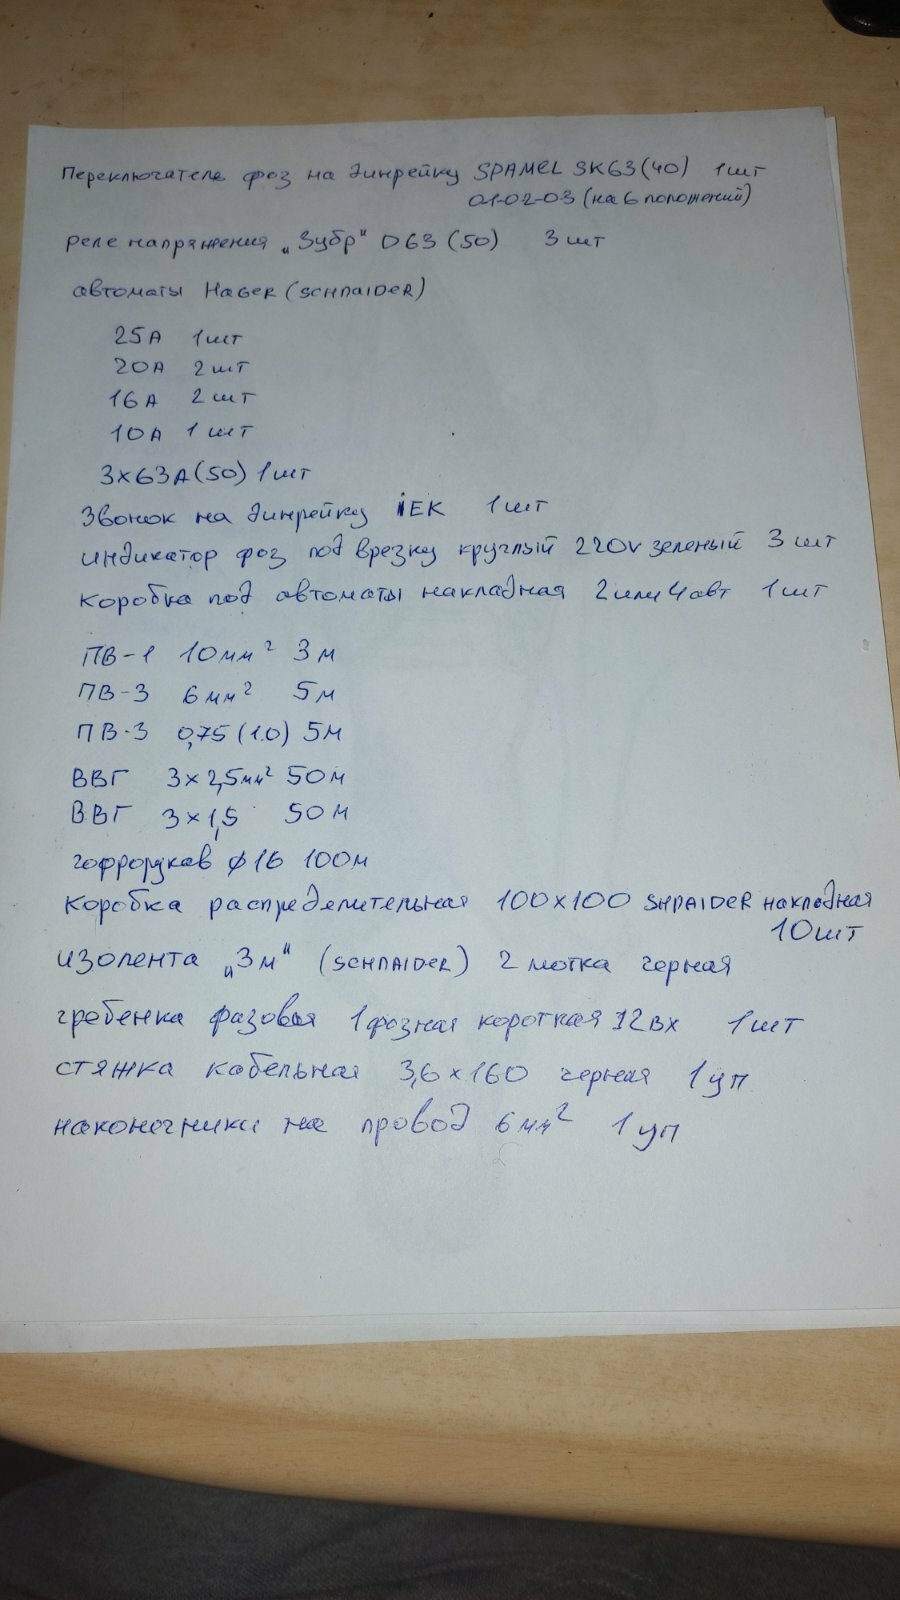 Переключатель фаз на динрейку SPAMEL SK63(40) 1шт
01-02-03 (на 6 положений)
реле напряжения „Зубр" D63 (50) 3 шт
автоматы HAGER (SCHNAIDER)
25А 1шт
20А 2шт
16А 2шт
10А 1шт
3х63А(50) 1шт
Звонок на динрейку iEK 1шт
индикатор фаз под врезку круглый 220v зеленый 3 шт
коробка под автоматы накладная 2или4авт 1шт
ПВ-1 10мм² 3м
ПВ-3 6мм² 5м
ПВ-3 0,75(1.0) 5м
ВВГ 3х2,5мм² 50м
ВВГ 3х1,5 50м
гофрорукав ф16 100м
коробка распределительная 100х100 SHNAIDER накладная
10шт
изолента „3м" (SCHNAIDER) 2 мотка черная
гребенка фазовая 1фазная короткая 12вх 1шт
стяжка кабельная 3,6х160 черная 1уп
наконечники на провод 6мм² 1уп